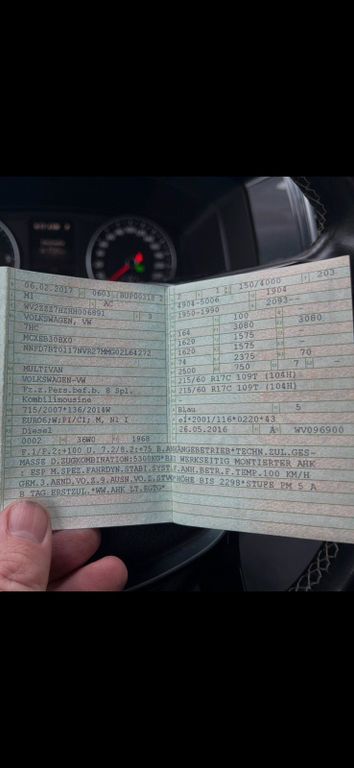 06.02.2017 0603 BUP00318 2
M1 AC
WV2ZZZ7HZHH006891 3
VOLKSWAGEN, VW
7HC
MGXEB30BX0
NNFD7BT0117NVR27MMG02L64272
MULTIVAN
VOLKSWAGEN-VW
Fz.z.Pers.bef.b. 8 Spl.
Kombilimousine
715/2007*136/2014W
EURO6;W:PI/CI; M, N1 I
Diesel
0002 36W0 1968
2 1 150/4000 203
4904-5006 1904
1950-1990 2093--
100 3080
164 3080
1620 1575
1620 1575
74 2375 70
2500 750 7 --
215/60 R17C 109T (104H)
215/60 R17C 109T (104H)
Blau 5
e1*2001/116*0220*43
26.05.2016 A WV096900
F.1/F.2:+100 U. 7.2/8.2:+75 B.ANHÄNGEBETRIEB*TECHN.ZUL.GES-
MASSE D.ZUGKOMBINATION:5300KG*BEI WERKSEITIG MONTIERTER AHK
: ESP M.SPEZ.FAHRDYN.STABI.SYST.F.ANH.BETR.F.TEMP.100 KM/H
GEM.3.AEND.VO.Z.9.AUSN.VO.Z.STVO*HÖHE BIS 2298*STUFE PM 5 A
B TAG ERSTZUL.*WW.AHK LT.EGTG*